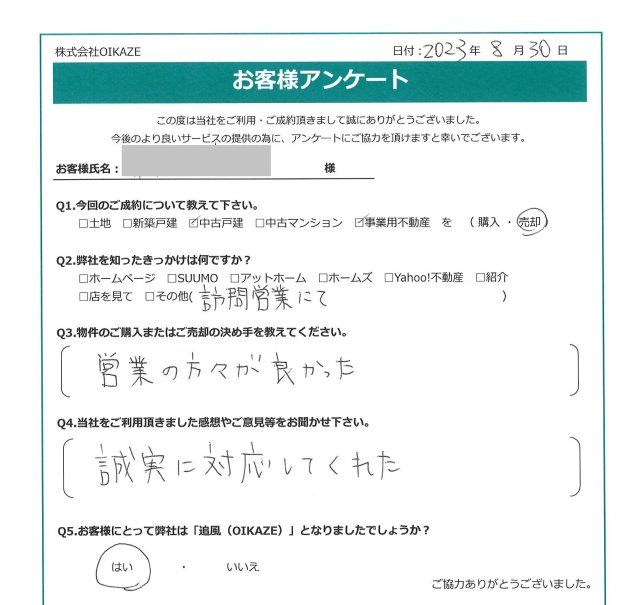 株式会社OIKAZE
日付：2023年 8月30日
お客様アンケート
この度は当社をご利用・ご成約頂きまして誠にありがとうございました。
今後のより良いサービスの提供の為に、アンケートにご協力を頂けますと幸いでございます。
お客様氏名： 様
Q1.今回のご成約について教えて下さい。
□土地 □新築戸建 ☑中古戸建 □中古マンション ☑事業用不動産 を （ 購入 ・ 売却 ）
Q2.弊社を知ったきっかけは何ですか？
□ホームページ □SUUMO □アットホーム □ホームズ □Yahoo!不動産 □紹介
□店を見て □その他( 訪問営業にて )
Q3.物件のご購入またはご売却の決め手を教えてください。
営業の方々が良かった
Q4.当社をご利用頂きました感想やご意見等をお聞かせ下さい。
誠実に対応してくれた
Q5.お客様にとって弊社は「追風（OIKAZE）」となりましたでしょうか？
はい ・ いいえ
ご協力ありがとうございました。